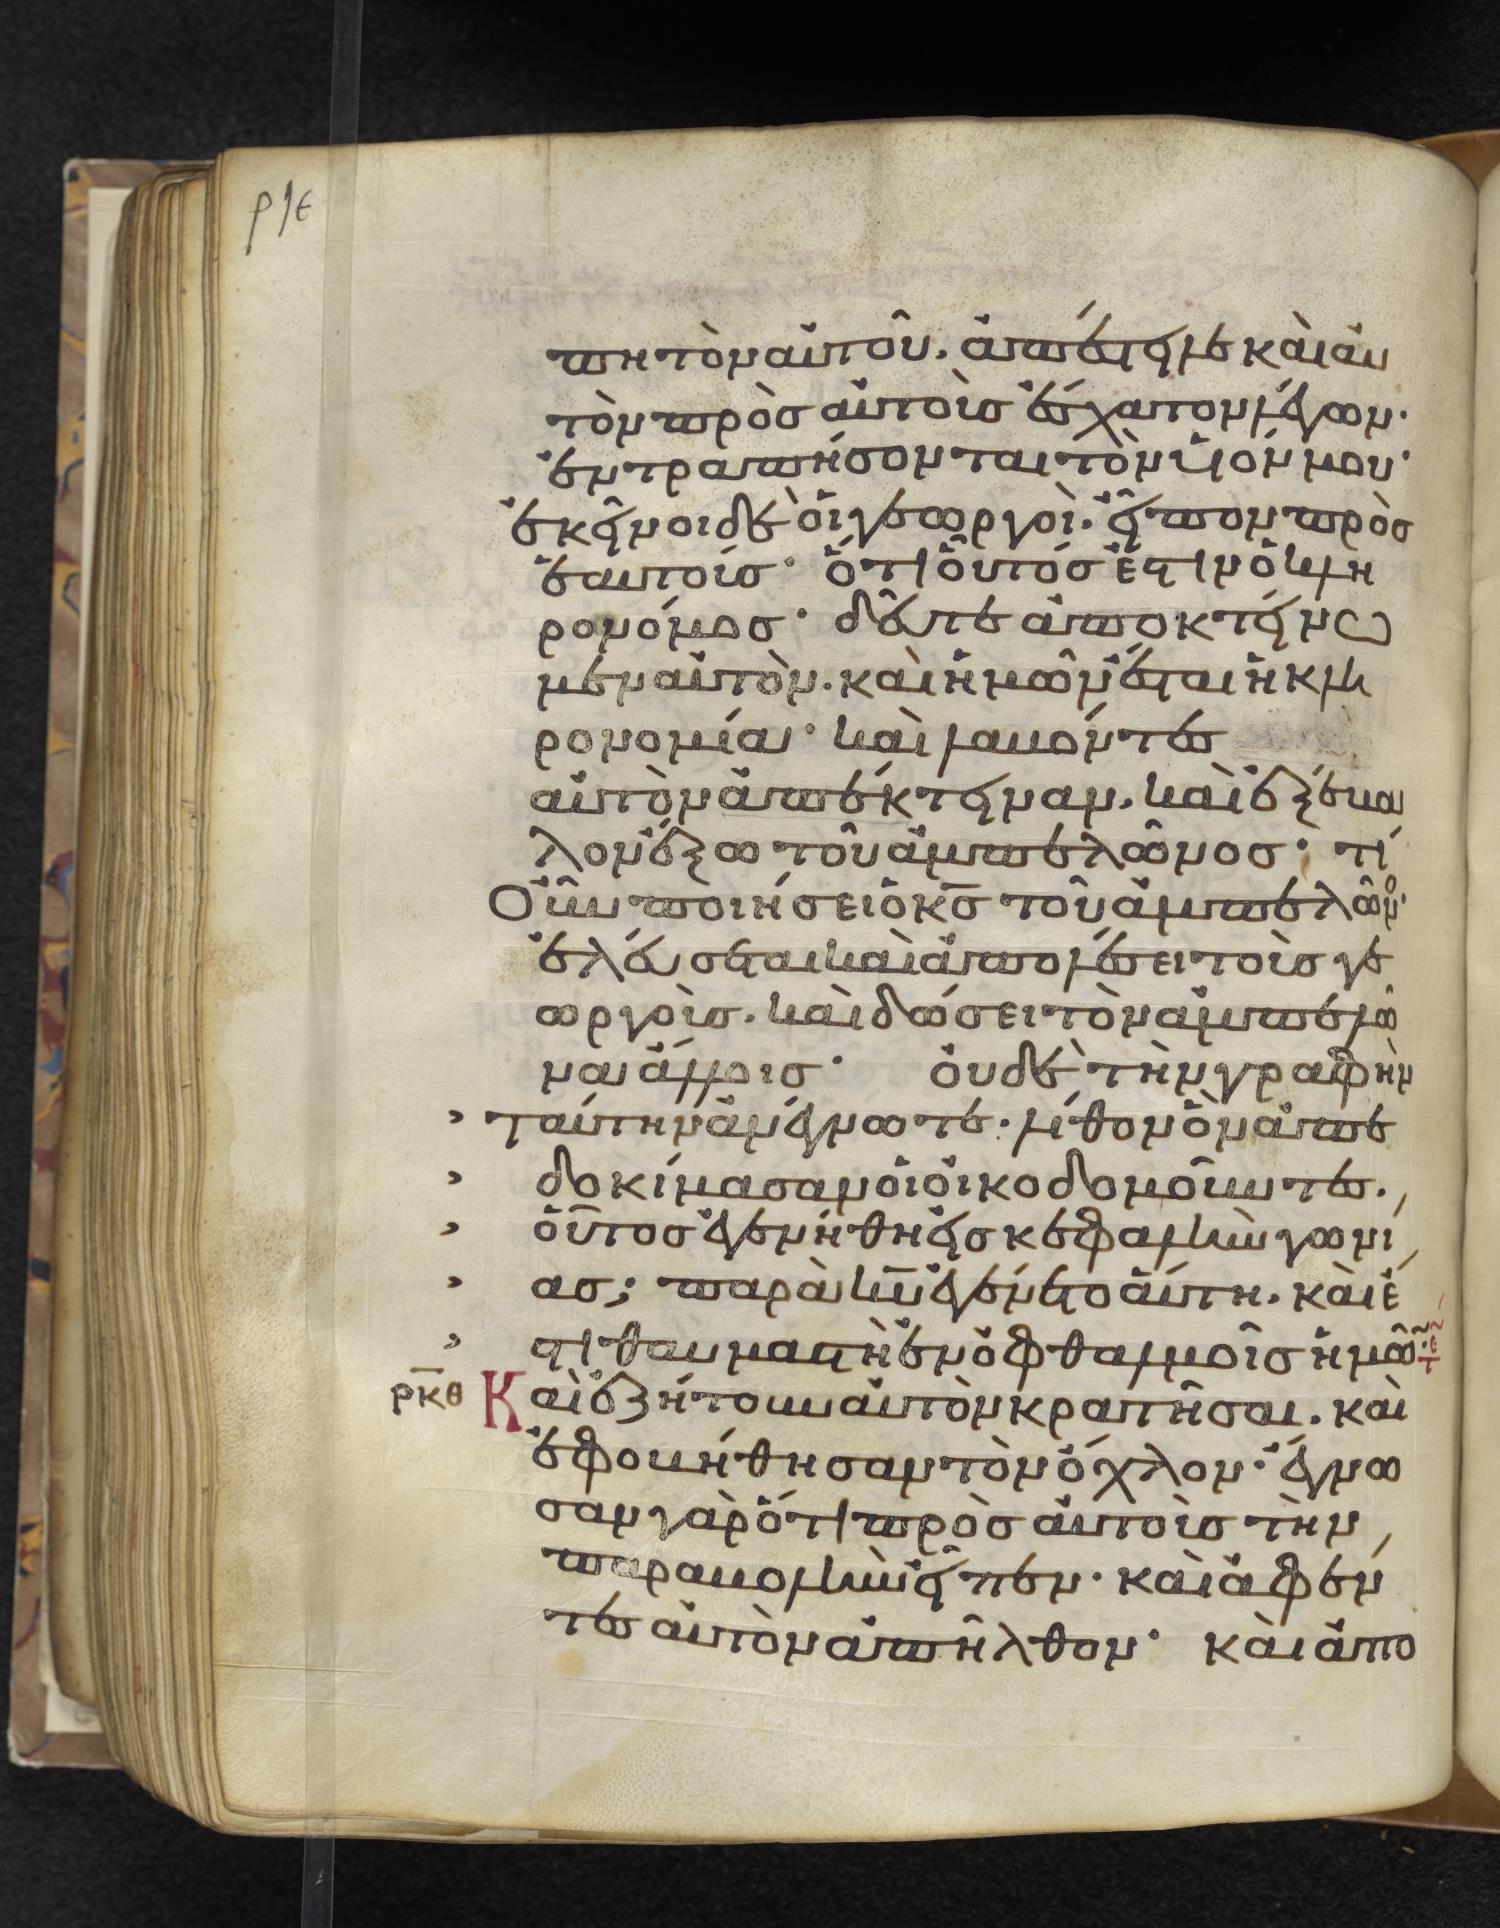 ρϟε
πητὸν αὐτοῦ. ἀπέστειλε καὶ αὐ
τὸν πρὸς αὐτοὺς ἔσχατον λέγων·
ἐντραπήσονται τὸν υἱόν μου·
ἐκεῖνοι δὲ οἱ γεωργοὶ. εἶπον πρὸς
ἑαυτούς· ὅτι οὗτός ἐστιν ὁ κλη
ρονόμος· δεῦτε ἀποκτείνω
μεν αὐτὸν. καὶ ἡμῶν ἔσται ἡ κλη
ρονομία· καὶ λαβόντες
αὐτὸν ἀπέκτειναν. καὶ ἐξέβα
λον ἔξω τοῦ ἀμπελῶνος· τί
οὖν ποιήσει ὁ κ̅ς̅ τοῦ ἀμπελῶνο·
ἐλεύσεται καὶ ἀπολέσει τοὺς γε
ωργοὺς. καὶ δώσει τὸν ἀμπελῶ
να ἄλλοις· οὐδὲ τὴν γραφὴν
> ταύτην ἀνέγνωτε. λίθον ὃν ἀπε
> δοκίμασαν οἱ οἰκοδομοῦντες.
> οὗτος ἐγενήθη εἰς κεφαλὴν γωνί
> ας; παρὰ κ̅υ̅ ἐγένετο αὕτη. καὶ ἔ
> στι θαυμαστὴ ἐν ὀφθαλμοῖς ἡμῶ·
ρκθ Καὶ ἐζήτουν αὐτὸν κρατῆσαι. καὶ
ἐφοβήθησαν τὸν ὄχλον· ἔγνω
σαν γὰρ ὅτι πρὸς αὐτοὺς τὴν
παραβολὴν εἶπεν· καὶ ἀφέν
τες αὐτὸν ἀπῆλθον· καὶ ἀπο